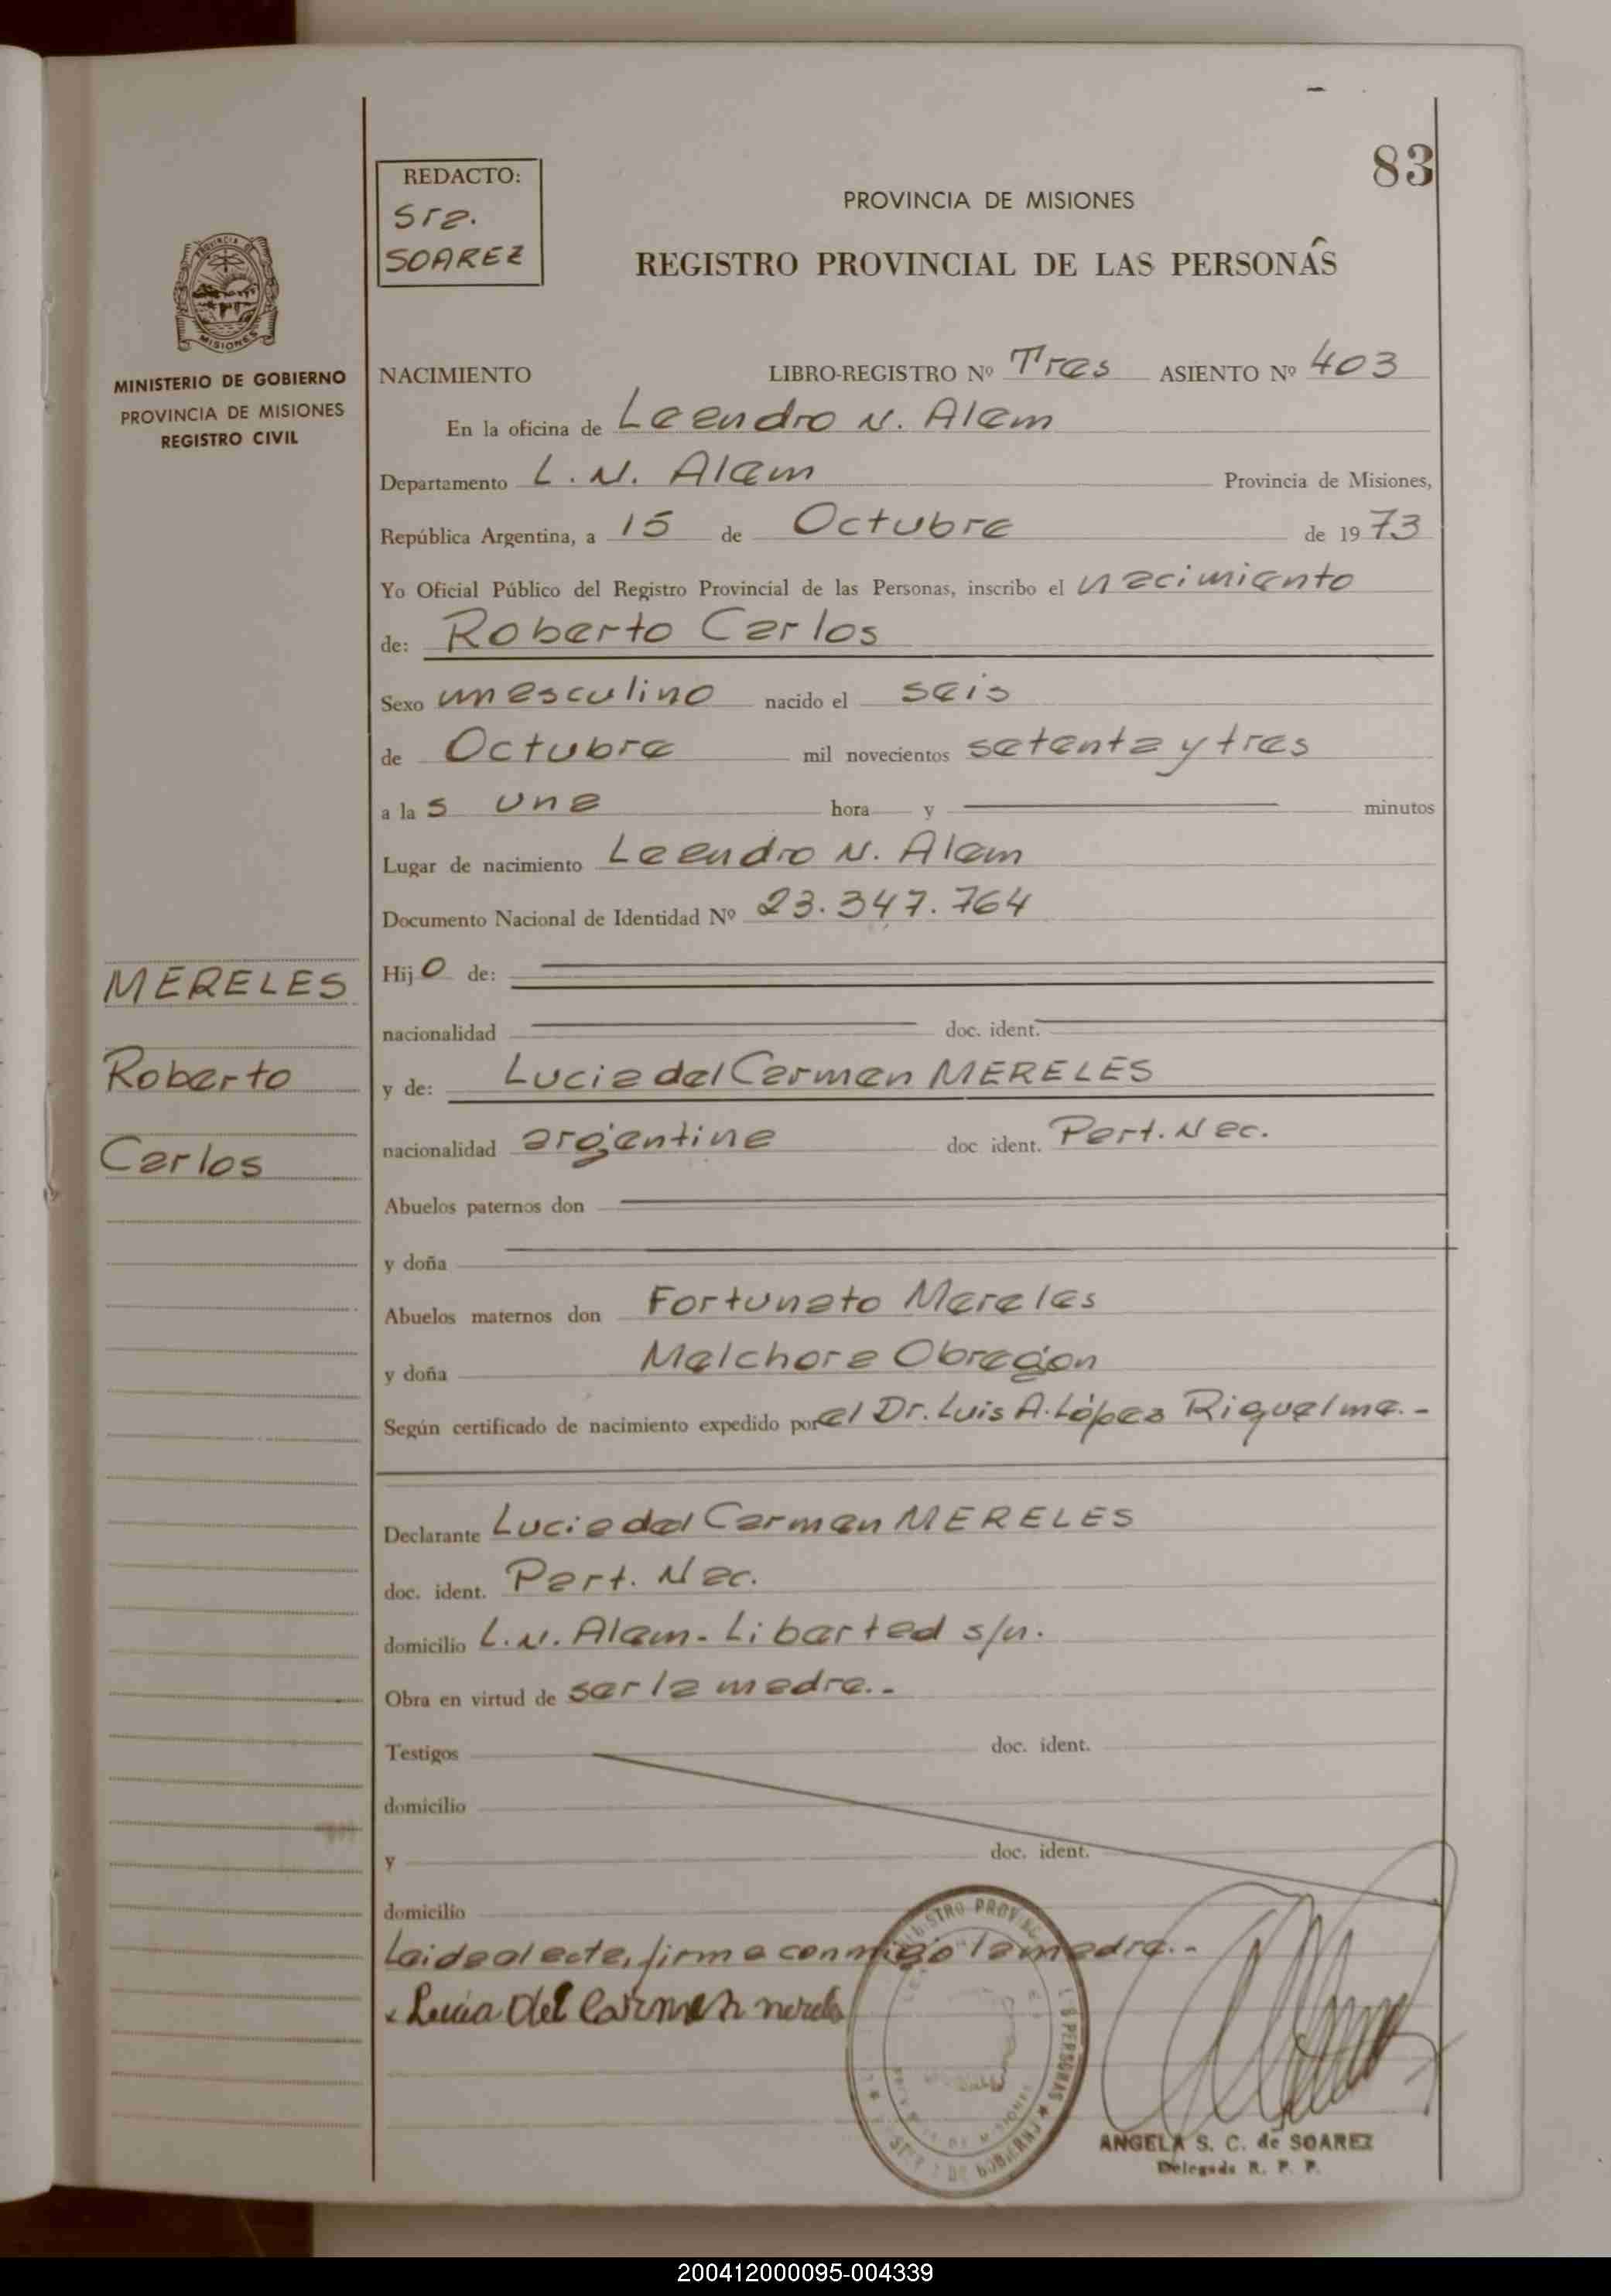 83
REDACTO:
Sra.
SOAREZ
PROVINCIA DE MISIONES
REGISTRO PROVINCIAL DE LAS PERSONAS
PROVINCIA DE
MISIONES
MINISTERIO DE GOBIERNO
PROVINCIA DE MISIONES
REGISTRO CIVIL
NACIMIENTO LIBRO-REGISTRO Nº Tres ASIENTO Nº 403
En la oficina de Leandro N. Alem
Departamento L. N. Alem Provincia de Misiones,
República Argentina, a 15 de Octubre de 1973
Yo Oficial Público del Registro Provincial de las Personas, inscribo el nacimiento
de: Roberto Carlos
Sexo masculino nacido el seis
de Octubre mil novecientos setenta y tres
a las una hora y minutos
Lugar de nacimiento Leandro N. Alem
Documento Nacional de Identidad Nº 23.347.764
MERELES
Roberto
Carlos
Hijo de:
nacionalidad doc. ident.
y de: Lucia del Carmen MERELES
nacionalidad argentina doc ident. Part. Nac.
Abuelos paternos don
y doña
Abuelos maternos don Fortunato Mereles
y doña Melchora Obregón
Según certificado de nacimiento expedido por el Dr. Luis A. López Riquelme.-
Declarante Lucia del Carmen MERELES
doc. ident. Part. Nac.
domicilio L.N. Alem - Libertad s/n.
Obra en virtud de ser la madre.-
Testigos doc. ident.
domicilio
y doc. ident.
domicilio
Leida el acta, firma conmigo la madre.-
Lucia Del Carmen
ANGELA S. C. de SOAREZ
Delegada R. P. P.
200412000095-004339